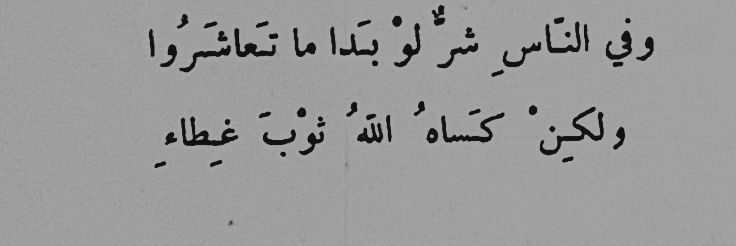 وفي النَّاسِ شرٌّ لوْ بَدا ما تَعاشَرُوا
ولكِنْ كَساهُ اللهُ ثوْبَ غِطاءِ